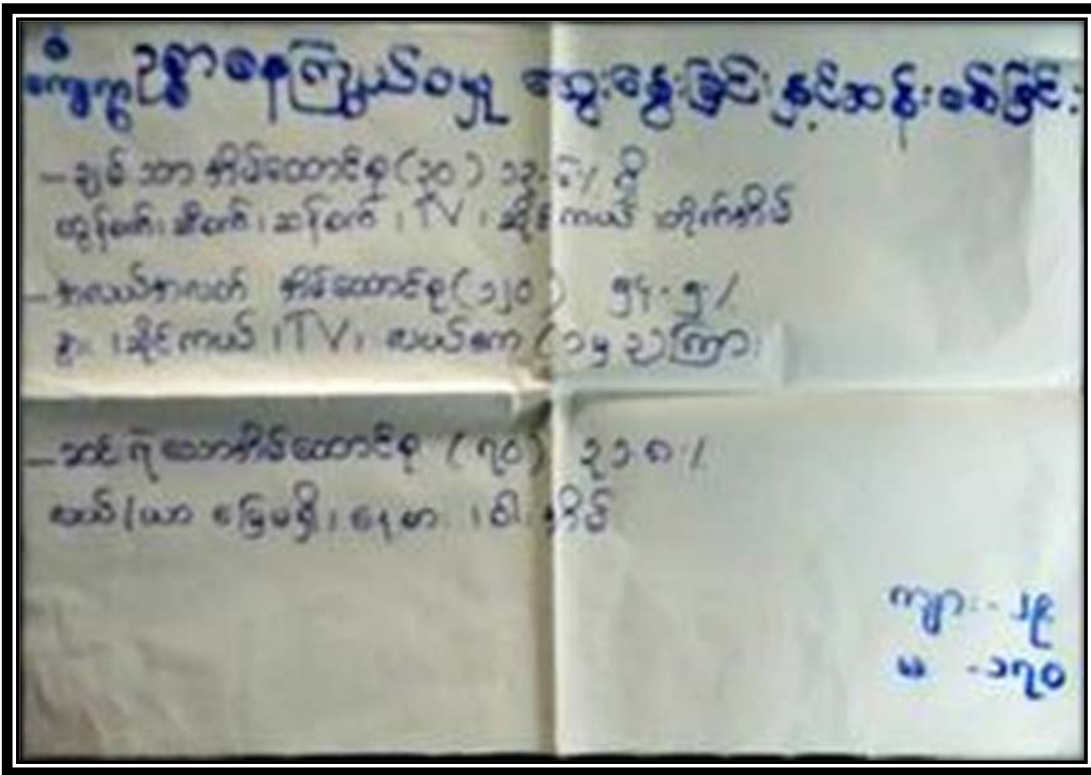 ကျေးရွာနေကြွယ်ဝမှု ဆွေးနွေးခြင်းနှင့်ဆန်းစစ်ခြင်း
- ချမ်းသာ အိမ်ထောင်စု (၃၀) ၁၃.၆ % ရှိ
ထွန်စက်၊ ဆီစက်၊ ဆန်စက်၊ TV၊ ဆိုင်ကယ် တိုက်အိမ်
- အလယ်အလတ် အိမ်ထောင်စု (၁၂၀) ၅၄.၅ %
နွား၊ ဆိုင်ကယ်၊ TV၊ လယ်ဧက ကြား
- ဆင်းရဲသောအိမ်ထောင်စု (၇၀) ၃၁.၈ %
လယ်/ယာ မြေမရှိ၊ နေ့စား၊ ဝါးအိမ်
ကျား - ၂၉
မ - ၁၇၀